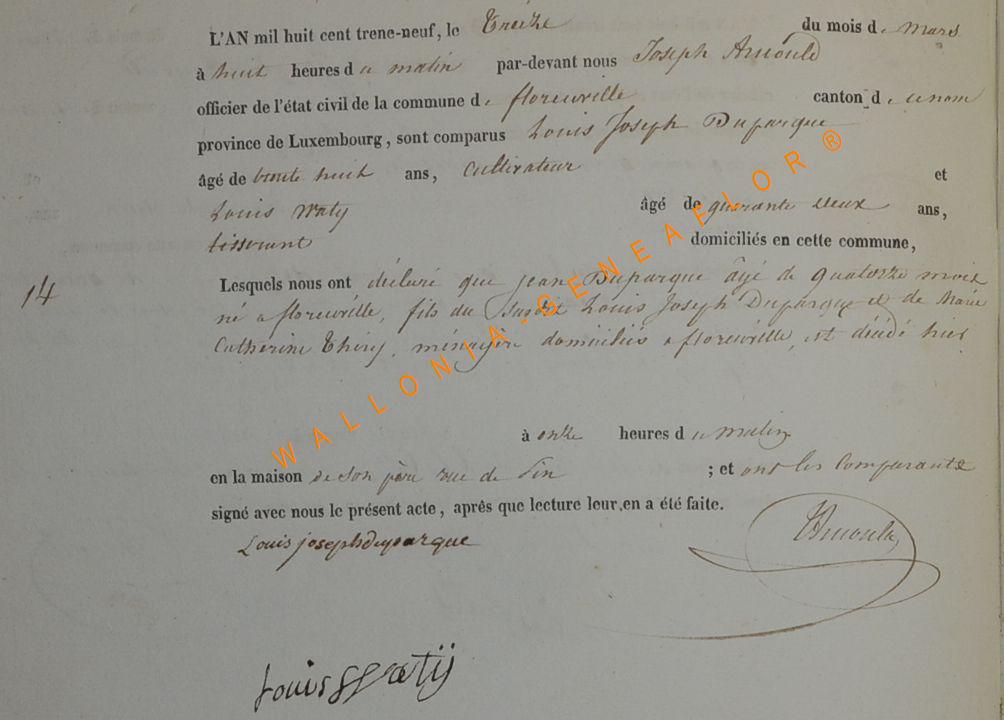 L'AN mil huit cent trene-neuf, le Treize du mois de Mars
à huit heures du matin par-devant nous Joseph Arnould
officier de l'état civil de la commune de florenville canton d ce nom
province de Luxembourg, sont comparus Louis Joseph Duparque
âgé de trente huit ans, Cultivateur et
Louis Waty âgé de quarante deux ans,
tisserant domiciliés en cette commune,
14
Lesquels nous ont déclaré que jean Duparque âgé de quatorze mois
né a florenville, fils du Susdit Louis Joseph Duparque et de Marie
Catherine Thiry, ménagère domiciliés a florenville, est décédé hier
à onze heures du matin
en la maison de son père rue de ; et ont les Comparants
signé avec nous le présent acte, après que lecture leur en a été faite.
Louis joseph duparque
JArnould
Louis Watij
WALLONIA-GENEAFLOR®